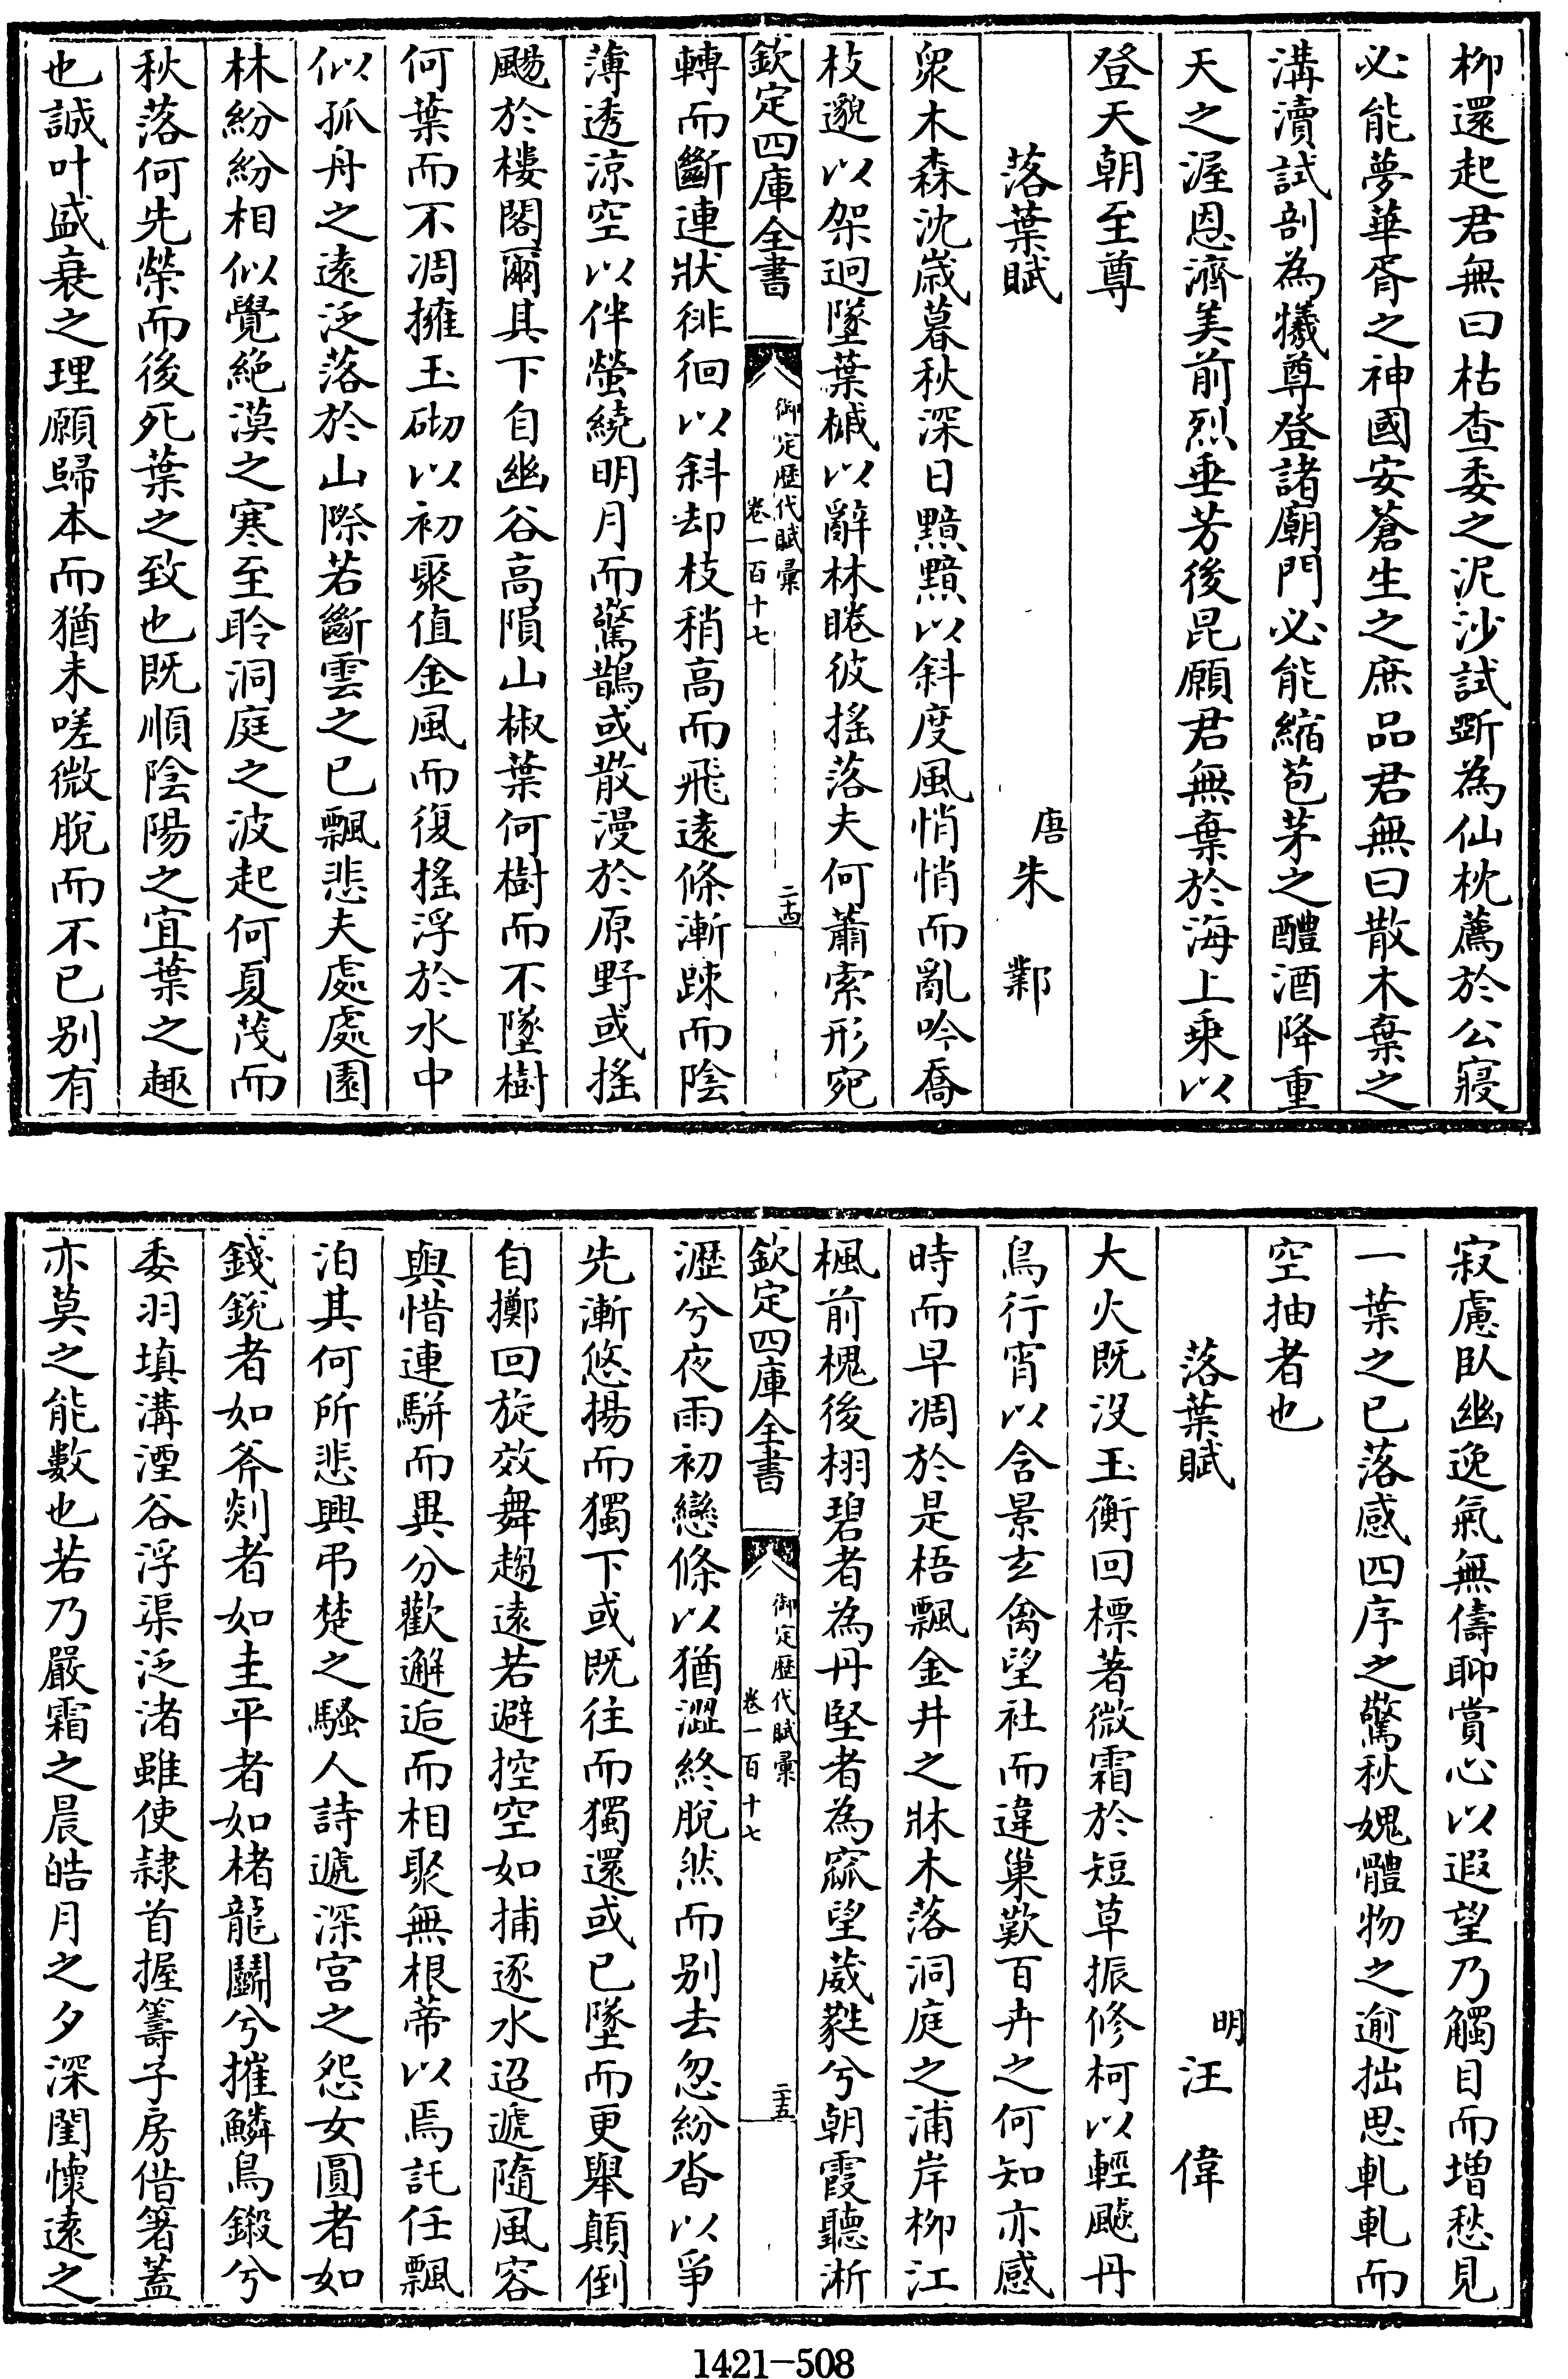 柳還起君無曰枯查委之泥沙試斵為仙枕薦於公寢
必能夢華胥之神國安蒼生之庶品君無曰散木棄之
溝瀆試剖為犧尊登諸廟門必能縮苞茅之醴酒降重
天之渥恩濟美前烈垂芳後昆願君無棄於海上乘以
登天朝至尊
落葉賦
唐朱鄴
衆木森沈歳暮秋深日黯黯以斜度風悄悄而亂吟喬
枝邈以架迥墜葉槭以辭林睠彼搖落夫何蕭索形宛
欽定四庫全書
御定歴代賦彙
卷一百十七
二十四
轉而斷連狀徘徊以斜却枝稍高而飛遠條漸踈而陰
薄透涼空以伴螢繞明月而驚鵲或散漫於原野或搖
颺於樓閣爾其下自幽谷高隕山椒葉何樹而不墜樹
何葉而不凋擁玉砌以初聚值金風而復搖浮於水中
似孤舟之遠泛落於山際若斷雲之已飄悲夫處處園
林紛紛相似覺絶漠之寒至聆洞庭之波起何夏茂而
秋落何先榮而後死葉之致也既順陰陽之宜葉之趣
也誠叶盛衰之理願歸本而猶未嗟微脫而不已别有
寂慮臥幽逸氣無儔聊賞心以遐望乃觸目而增愁見
一葉之已落感四序之驚秋媿體物之逾拙思軋軋而
空抽者也
落葉賦
明汪偉
大火既沒玉衡回標著微霜於短草振修柯以輕飈丹
鳥行宵以含景玄禽望社而違巢歎百卉之何知亦感
時而早凋於是梧飄金井之牀木落洞庭之浦岸柳江
楓前槐後栩碧者為丹堅者為窳望葳蕤兮朝霞聽淅
欽定四庫全書
御定歴代賦彙
卷一百十七
二十五
瀝兮夜雨初戀條以猶澀終脫然而别去忽紛沓以爭
先漸悠揚而獨下或既往而獨還或已墜而更舉顛倒
自擲回旋效舞趨遠若避控空如捕逐水迢遞隨風容
與惜連駢而異分歡邂逅而相聚無根蒂以焉託任飄
泊其何所悲興弔楚之騷人詩遞深宫之怨女圓者如
錢銳者如斧剡者如圭平者如楮龍鬭兮摧鱗鳥鎩兮
委羽填溝湮谷浮渠泛渚雖使隷首握籌子房借箸蓋
亦莫之能數也若乃嚴霜之晨皓月之夕深閨懷遠之
1421-508